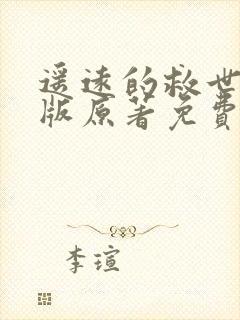 遥远的救世
版原著免费
李瑄